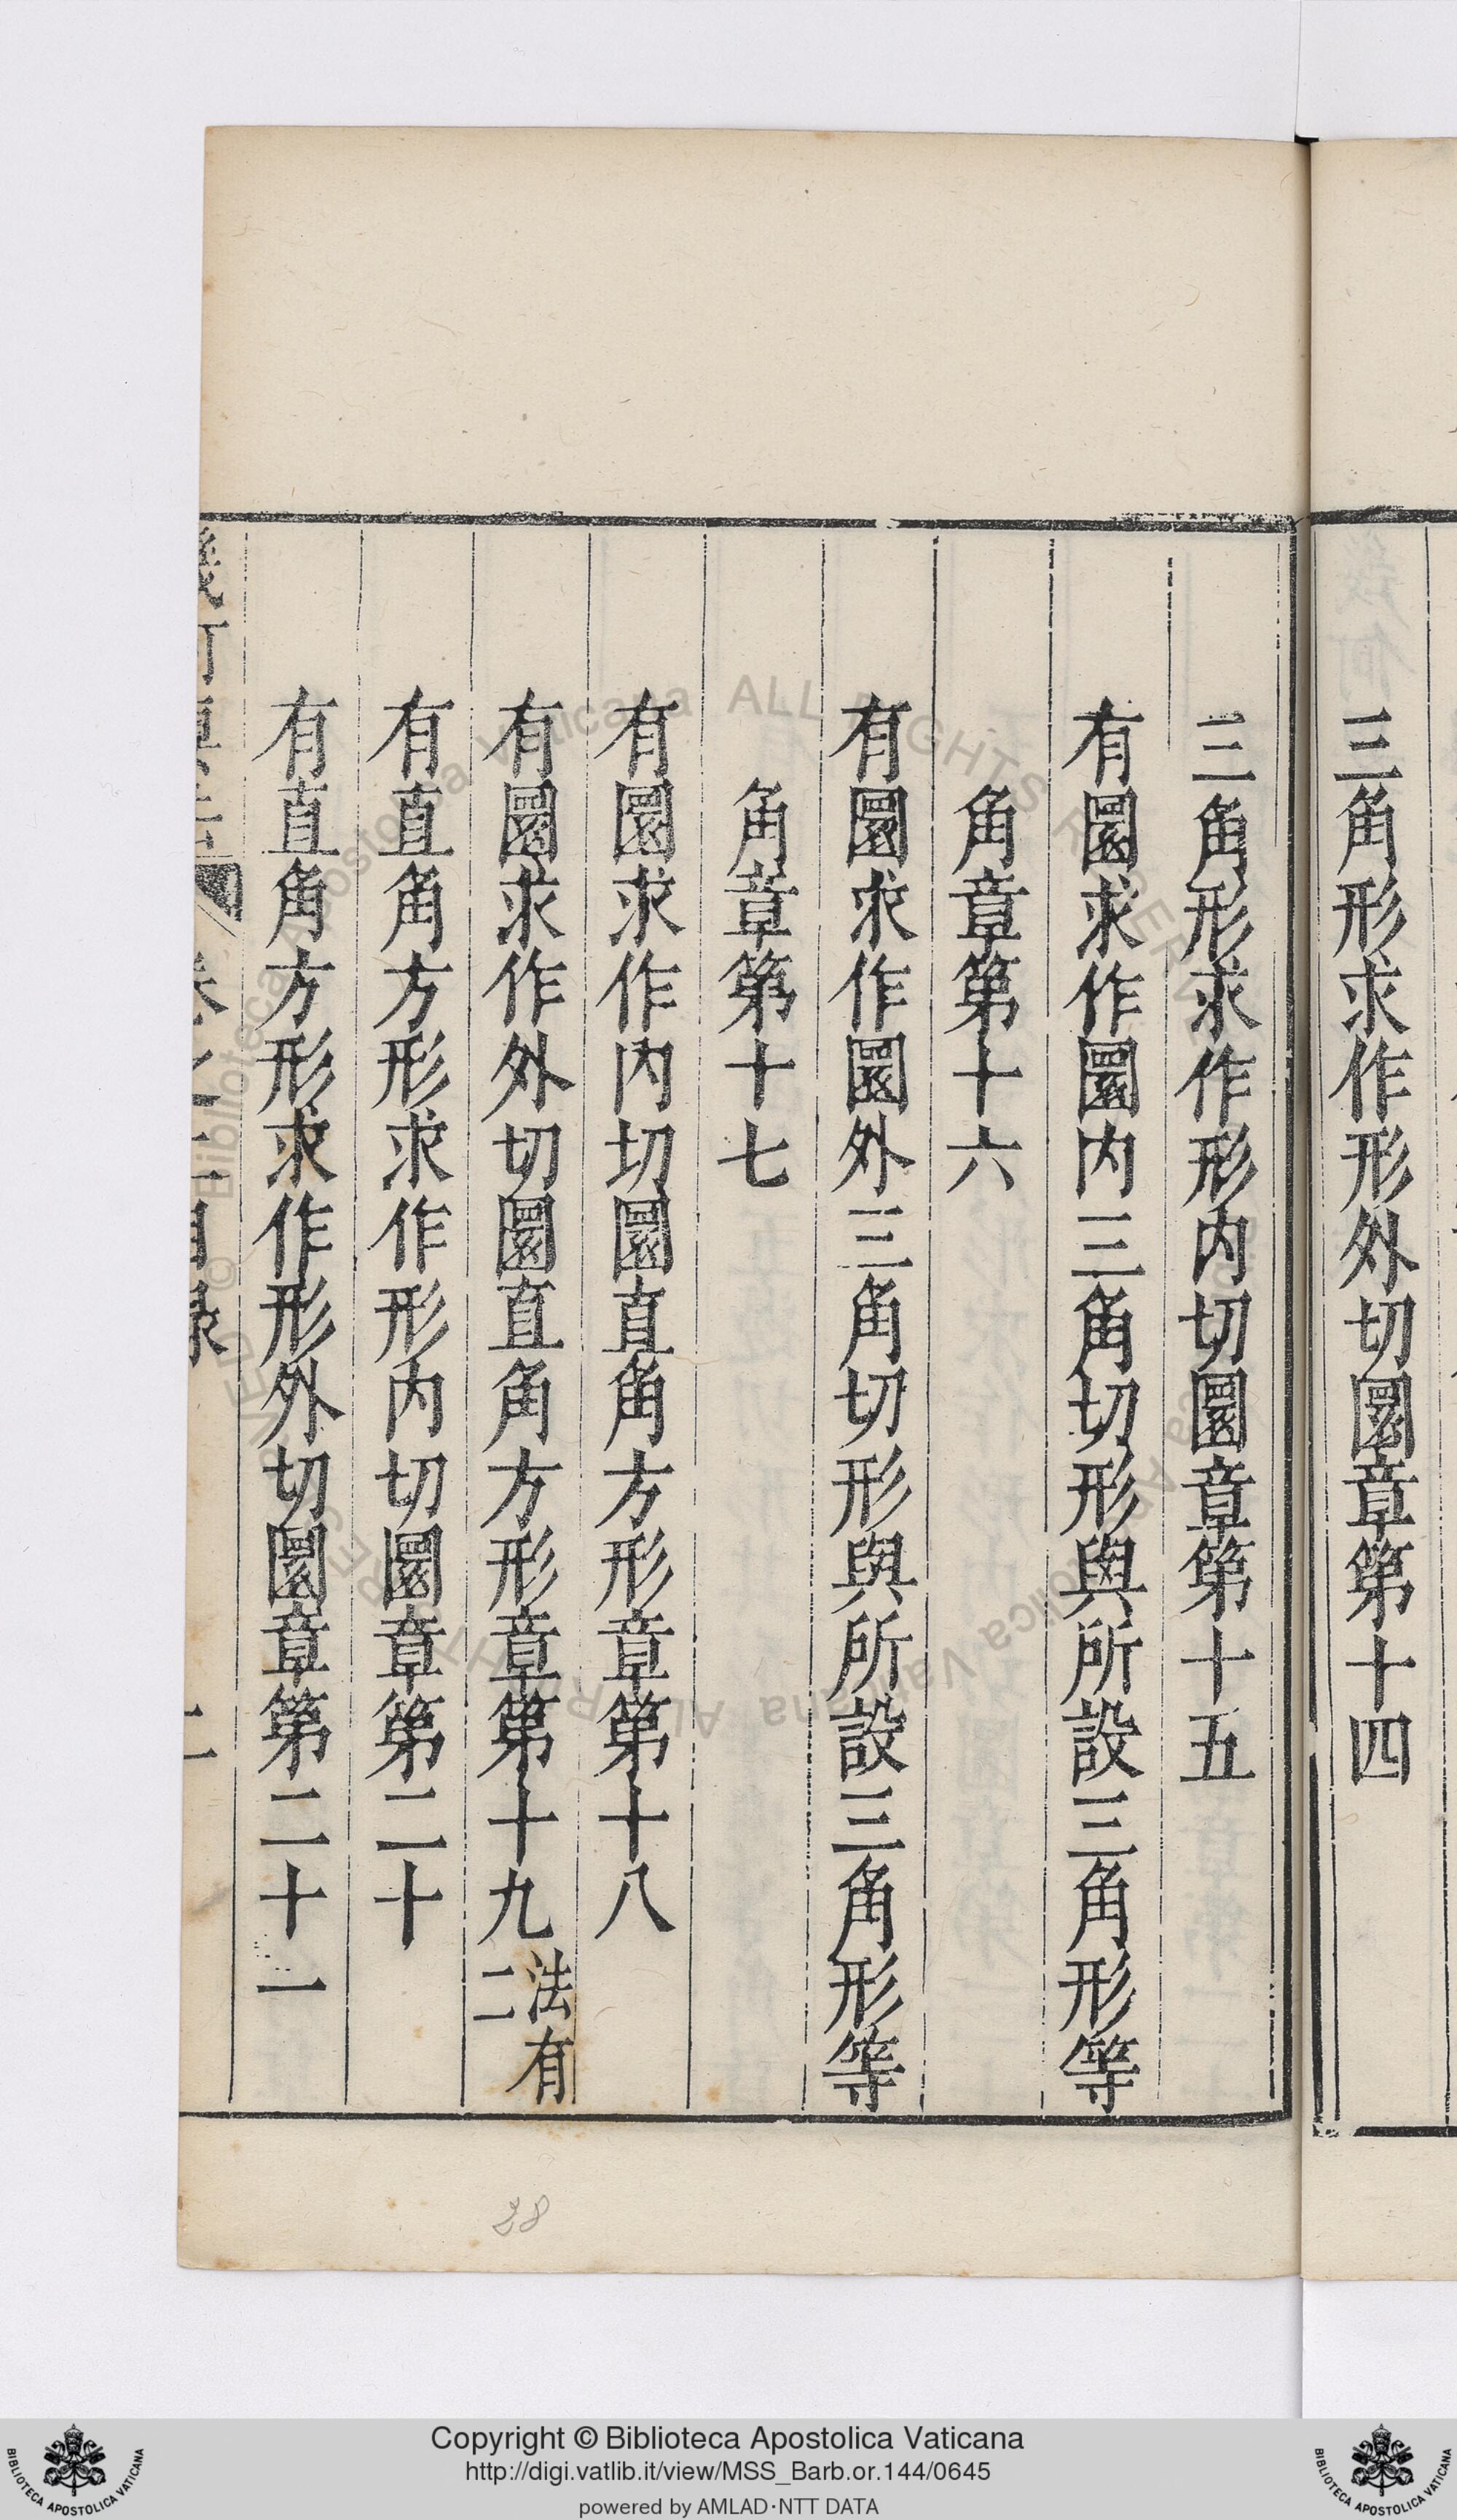 三角形求作形外切圜章第十四
三角形求作形内切圜章第十五
有圜求作圜内三角切形與所設三角形等
角章第十六
有圜求作圜外三角切形與所設三角形等
角章第十七
有圜求作内切圜直角方形章第十八
有圜求作外切圜直角方形章第十九法有二
有直角方形求作形内切圜章第二十
有直角方形求作形外切圜章第二十一
目录
二
28
© Biblioteca Apostolica Vaticana ALL RIGHTS RESERVED
Copyright © Biblioteca Apostolica Vaticana
http://digi.vatlib.it/view/MSS_Barb.or.144/0645
powered by AMLAD·NTT DATA
BIBLIOTECA APOSTOLICA VATICANA
BIBLIOTECA APOSTOLICA VATICANA